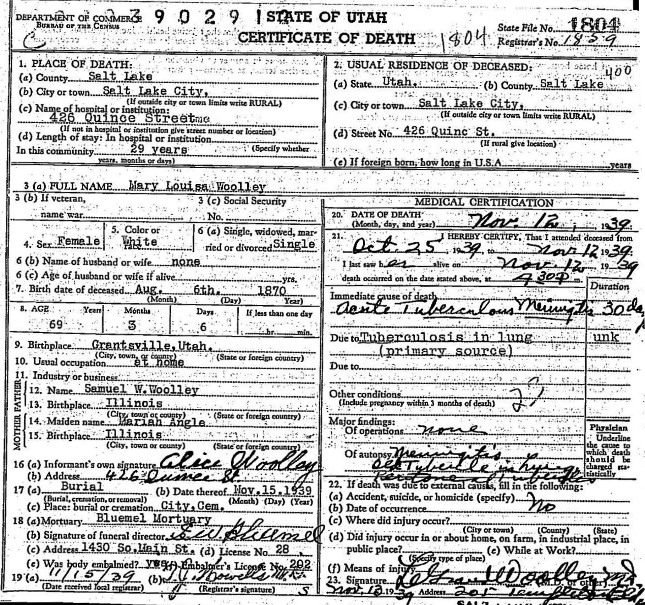 DEPARTMENT OF COMMERCE
BUREAU OF THE CENSUS
39029
STATE OF UTAH
CERTIFICATE OF DEATH
1804
State File No. 1804
Registrar's No. 1839
1. PLACE OF DEATH:
(a) County Salt Lake
(b) City or town Salt Lake City,
(If outside city or town limits write RURAL)
(c) Name of hospital or institution:
426 Quince Street
(If not in hospital or institution give street number or location)
(d) Length of stay: In hospital or institution
In this community 29 years (Specify whether
years, months or days)
2. USUAL RESIDENCE OF DECEASED: 400
(a) State Utah. (b) County Salt Lake
(c) City or town Salt Lake City,
(If outside city or town limits write RURAL)
(d) Street No. 426 Quinc St.
(If rural give location)
(e) If foreign born, how long in U.S.A. years
3 (a) FULL NAME Mary Louisa Woolley
3 (b) If veteran, name war
3 (c) Social Security No.
4. Sex Female
5. Color or race White
6 (a) Single, widowed, married or divorced Single
6 (b) Name of husband or wife none
6 (c) Age of husband or wife if alive yrs.
7. Birth date of deceased Aug. 6th. 1870
(Month) (Day) (Year)
8. AGE Years Months Days If less than one day
69 3 6 hr. min.
9. Birthplace Grantsville, Utah.
(City, town, or county) (State or foreign country)
10. Usual occupation at home
11. Industry or business
FATHER
12. Name Samuel W. Woolley
13. Birthplace Illinois
(City, town or county) (State or foreign country)
MOTHER
14. Maiden name Mariah Angle
15. Birthplace Illinois
(City, town or county) (State or foreign country)
16 (a) Informant's own signature Alice Woolley
(b) Address 426 Quince St
17 (a) Burial (b) Date thereof Nov.15.1939
(Burial, cremation, or removal) (Month) (Day) (Year)
(c) Place: burial or cremation City, Cem.
18 (a) Mortuary Bluemel Mortuary
(b) Signature of funeral director E W Bluemel
(c) Address 1430 So. Main St. (d) License No. 28
(e) Was body embalmed? yes (f) Embalmer's License No. 202
19 (a) 11/15/39 (b)
(Date received local registrar) (Registrar's signature)
MEDICAL CERTIFICATION
20. DATE OF DEATH Nov. 12, 1939
(Month, day, and year)
21. I HEREBY CERTIFY, That I attended deceased from
Oct 25, 1939, to Nov 12 1939.
I last saw her alive on Nov. 12, 1939
death occurred on the date stated above, at m.
Duration
Immediate cause of death
Acute Tuberculous Meningitis 30 days
Due to Tuberculosis in lung unk
(primary source)
Due to
Other conditions
(Include pregnancy within 3 months of death)
Major findings:
Of operations none
Of autopsy Meningitis
Physician
Underline the cause to which death should be charged statistically
22. If death was due to external causes, fill in the following:
(a) Accident, suicide, or homicide (specify) No
(b) Date of occurrence
(c) Where did injury occur?
(City or town) (County) (State)
(d) Did injury occur in or about home, on farm, in industrial place, in public place? (e) While at Work?
(Specify type of place)
(f) Means of injury
23. Signature (M.D. or other)
Nov 13 39 Address 201